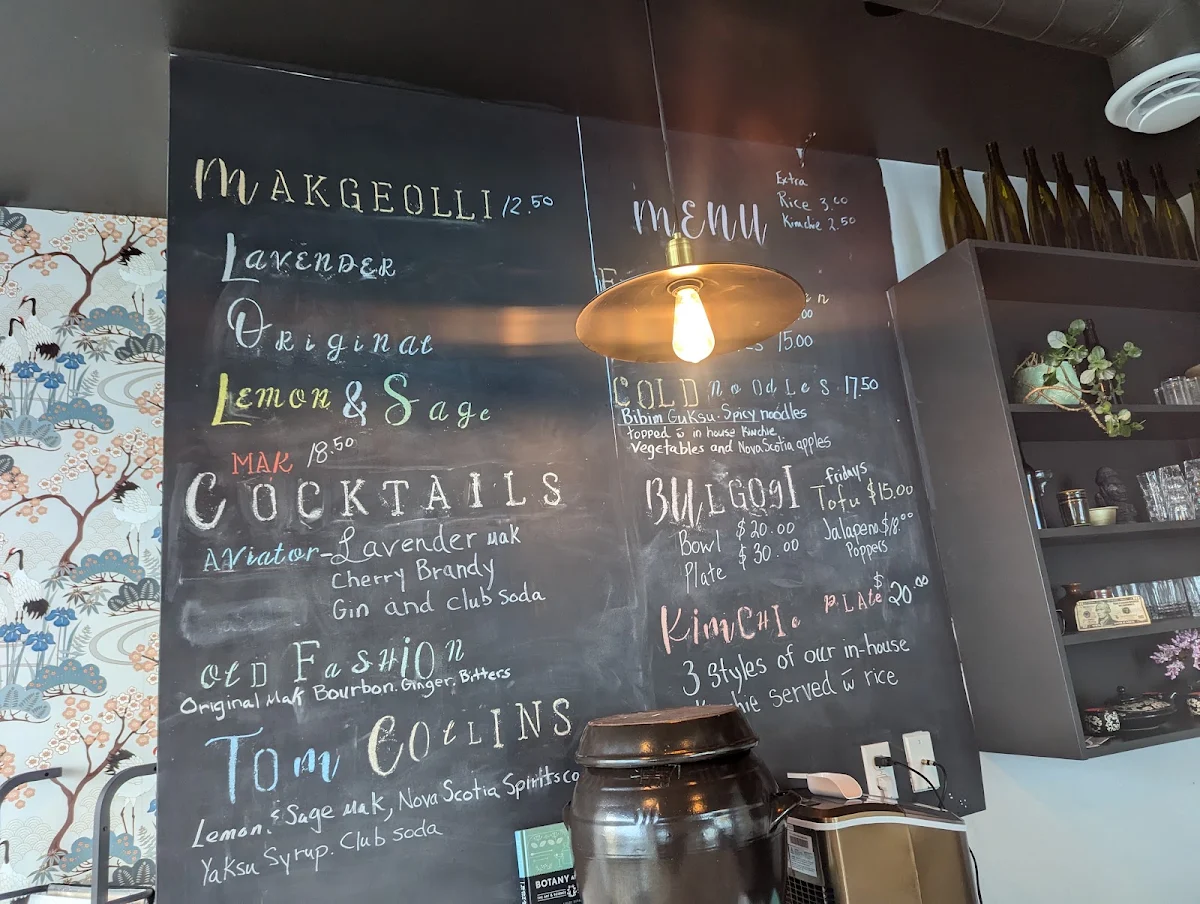 MAKGEOLLI 12.50
LAVENDER
Original
Lemon & Sage
MAK 18.50
COCKTAILS
AViator-Lavender Mak
Cherry Brandy
Gin and Club Soda
OLD FASHiON
Original Mak Bourbon. Ginger. Bitters
Tom COLLINS
Lemon & Sage Mak, Nova Scotia Spirits co
Yaksu Syrup. Club soda
MENU
Extra
Rice 3.00
Kimchie 2.50
15.00
COLD NoodLeS 17.50
Bibim Guksu. Spicy noodles
topped w̄ in house Kimchie
Vegetables and Nova Scotia apples
BULGOGI
Bowl $20.00
Plate $30.00
fridays
Tofu $15.00
Jalapeno $18.00
Poppers
KimCHI. PLAte $20.00
3 Styles of our in-house
served w̄ rice
BOTANY